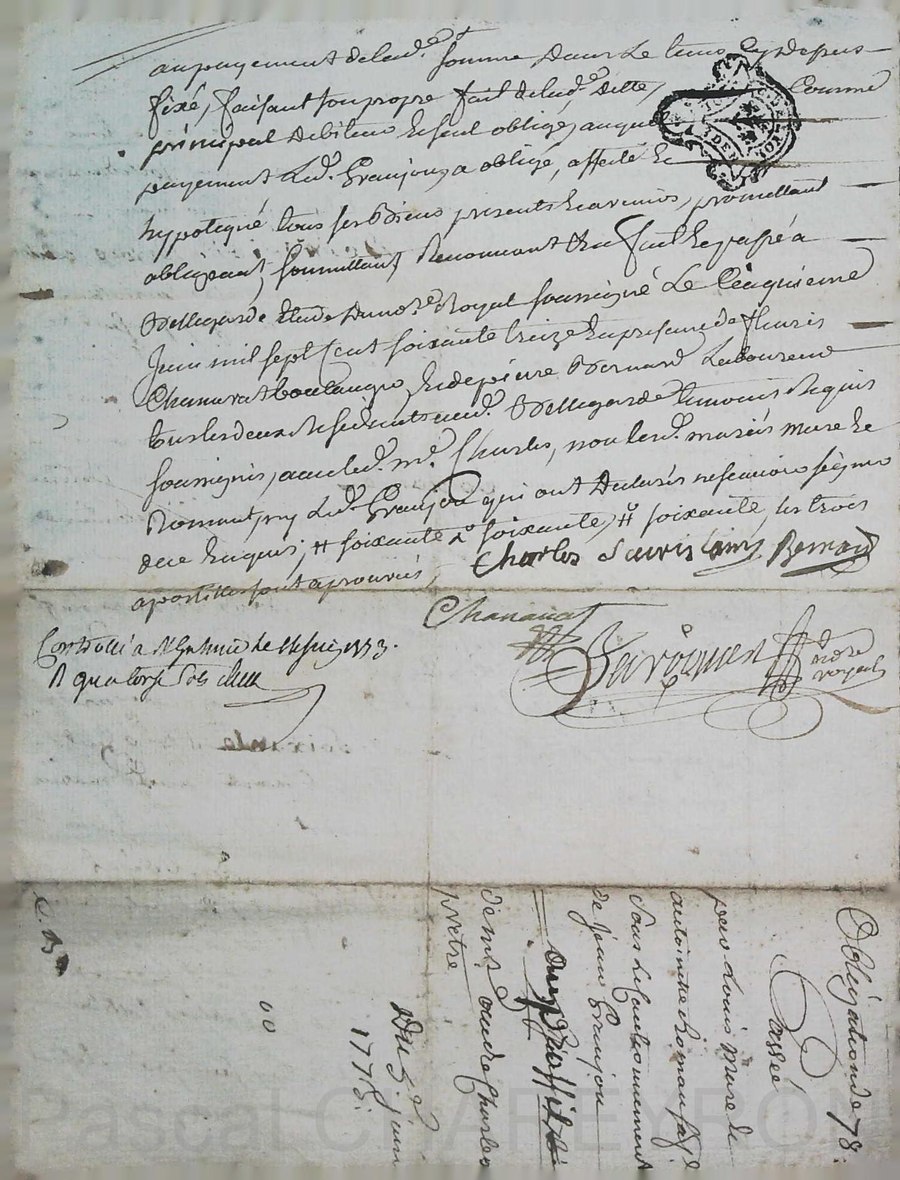 au payement de lad.e somme dans le tems cy depus
fixé, faisant son propre fait de lad.e dette, comme
principal debiteur et seul obligé, auquel
payement led.t Granjon a obligé, affecté et
hypotequé tous ses biens presents et avenirs, promettant
obligeant, soumettant, Renonçant &a fait et passé a
Bellegarde Etude du no.re Royal soussigné Le cinquieme
Juin mil sept cent soixante treize en presence de fleuris
Chanavat boulanger, et de pierre Bernard Laboureur
tous les deux residents aud.t Bellegarde temoins Requis
soussignés, avec led.t m.e Charles, non lesd.ts mariés mure et
Romant, ny led.t Granjon qui ont declarés ne scavoir signer
de ce Enquis; # soixante # soixante, # soixante, les trois
apostilles sont aprouvés,
Charles Bernard
Chanavat
no.re
royal
Controllé a le juin 1773.
R quatorze sols
Obligation de 78.
Passée
par Louis mure et
antoinette Romant
sous le cautionnement
de jean Granjon
au proffit
de m.e andre Charles
prêtre
Du 5.e juin
1773.
00